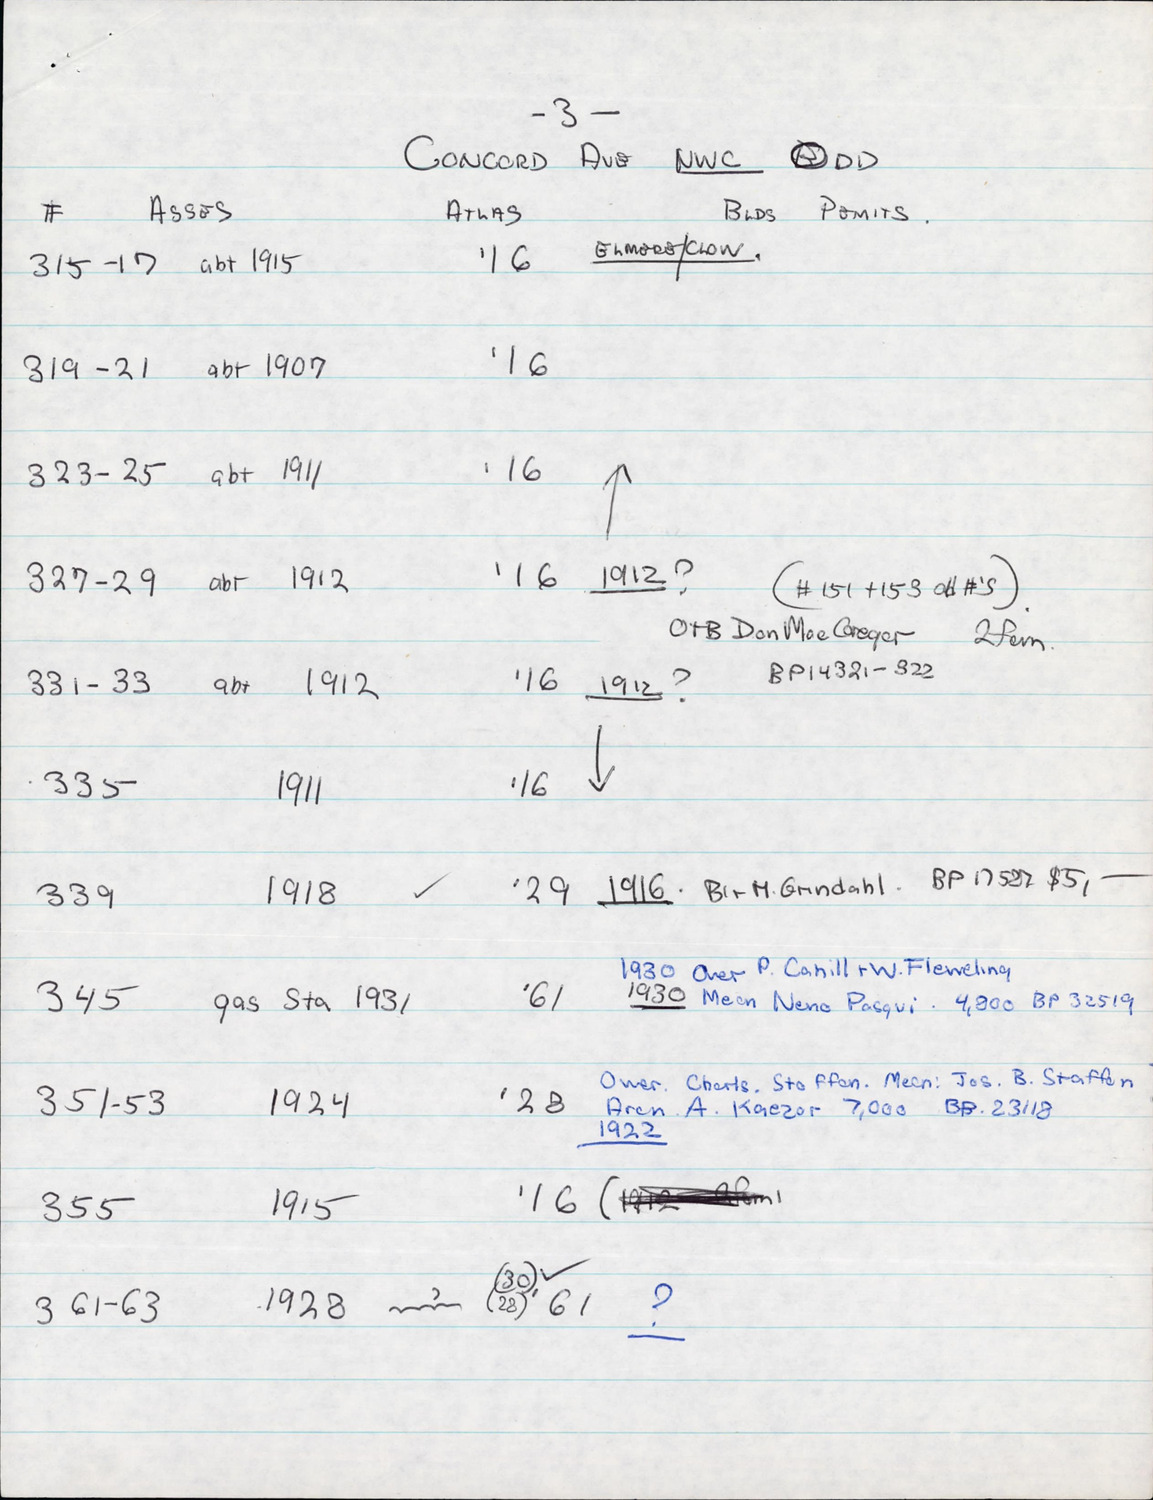 - 3 —
CONCORD AVE NWC ODD
# ASSES ATLAS BLDG PERMITS.
315-17 abt 1915 '16 ELMORE/CLOW.
319-21 abt 1907 '16
323-25 abt 1911 '16 ↑
327-29 abt 1912 '16 1912? (#151+153 old #'s).
O+B Don MacGregor 2 fam.
331-33 abt 1912 '16 1912? BP14321-322
335 1911 '16 ↓
339 1918 ✓ '29 1916. Bir M. Grindahl. BP 17587 $5,—
1930 Owner P. Cahill + W. Flewelling
345 gas Sta 1931 '61 1930 Mecn Neno Pasqui. 4,800 BP 32519
Owner. Charls. Staffen. Mecn: Jos. B. Staffen
351-53 1924 '28 Arcn A. Kaezor 7,000 BP. 23118
1922
355 1915 '16 (
(30) ✓
361-63 1928 ? (28) '61 ?